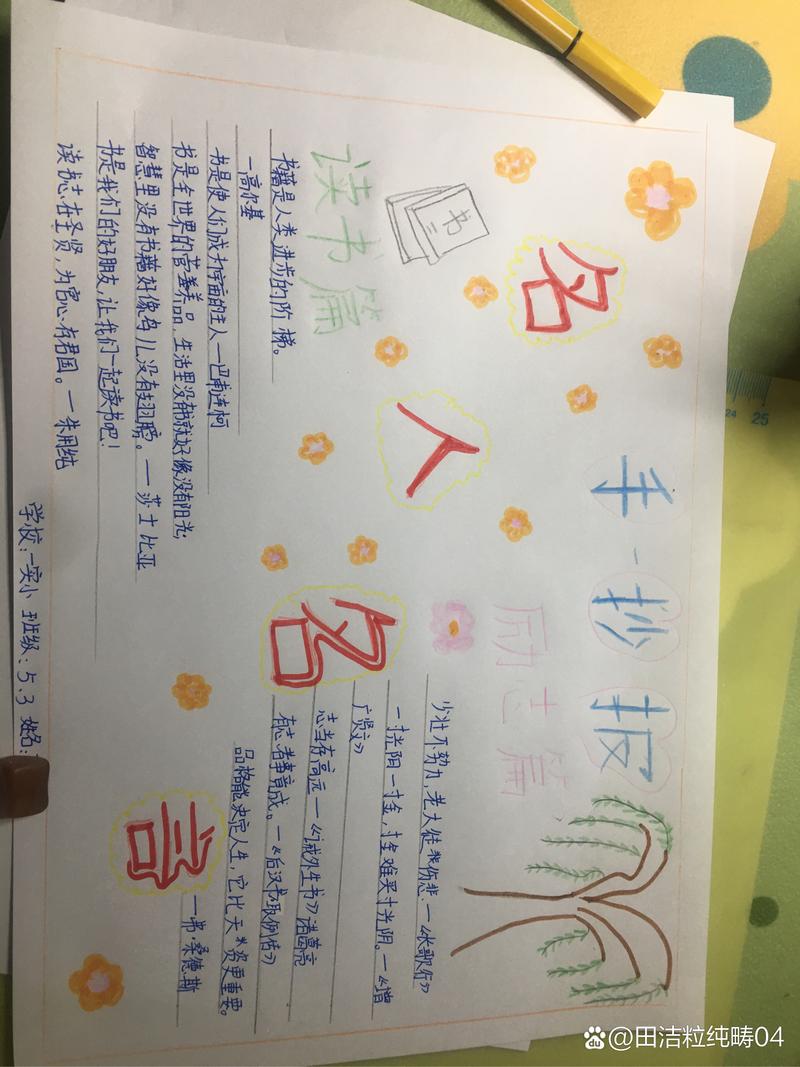 手抄报
名人名言
书
读书篇
书籍是人类进步的阶梯。
—高尔基
书是使人们成为宇宙的主人—巴甫连柯
书是全世界的营养品,生活里没有书就好像没有阳光,
智慧里没有书籍好像鸟儿没有翅膀。—莎士比亚
书是我们的好朋友,让我们一起读书吧!
读书志在圣贤,为官心有君国。—朱用纯
励志篇
少壮不努力,老大徒我伤悲.—《长歌行》
一寸光阳一寸金,寸金难买寸光阴。—《增
广贤文》
志当存高远—《诫外生书》诸葛亮
有志者事竟成。—《后汉书取例估》
品格能决定人生,它比天资更重要。
—弗·桑德斯
学校:一实小 班级:5.3 姓名:
24 25
Baidu @田洁粒纯畴04